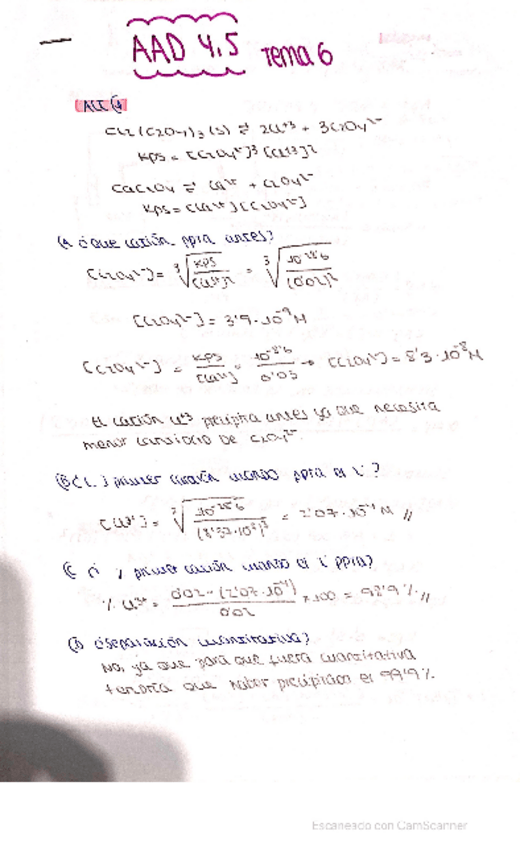 AAD 4.5 Tema 6
Act 4
Ce2(C2O4)3 (s) ⇌ 2Ce+3 + 3C2O4²⁻
Kps = [C2O4²⁻]³ [Ce+3]²
CaC2O4 ⇌ Ca²⁺ + C2O4²⁻
Kps = [Ca²⁺][C2O4²⁻]
(A ¿Que catión ppra antes?
[C2O4²⁻] = ∛(Kps / [Ce³⁺]²) = ∛(10^-28'6 / (0'02)²)
[C2O4²⁻] = 3'9·10⁻⁹ M
[C2O4²⁻] = Kps / [Ca²⁺] = 10^-8'6 / 0'03 → [C2O4²⁻] = 8'3·10⁻⁸ M
El catión Ce+3 precipita antes ya que necesita
menor de C2O4²⁻.
(B ¿[ ] primer catión cuando ppra el 2º?
[Ce³⁺] = = 2'07·10⁻⁴ M //
(C primer catión cuando el 2º ppra?
% Ce³⁺ = 0'02 - (2'07·10⁻⁴) / 0'02 × 100 = 92'9 % //
(D ¿Separación cuantitativa?
No, ya que para que fuera cuantitativa
tendría que haber precipitado el 99'9 %
Escaneado con CamScanner